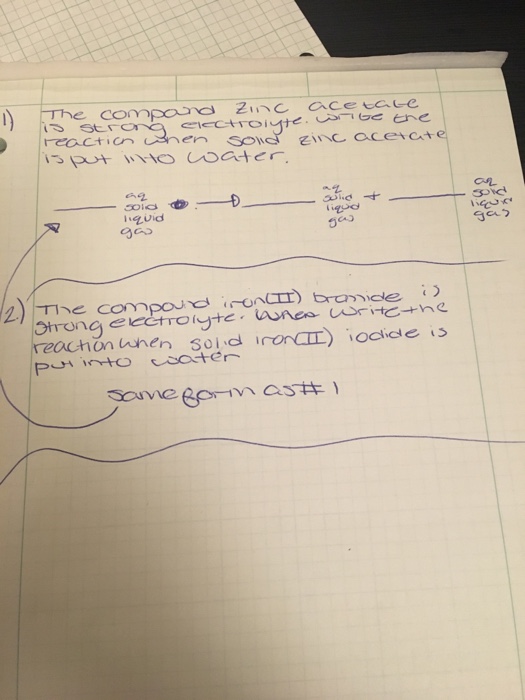 1) The compound zinc acetate
is strong electrolyte. Write the
reaction when solid zinc acetate
is put into water.
aq solid liquid gas
aq solid liquid gas +
aq solid liquid gas
2) The compound iron(II) bromide is
strong electrolyte. When write the
reaction when solid iron(II) iodide is
put into water
same form as #1